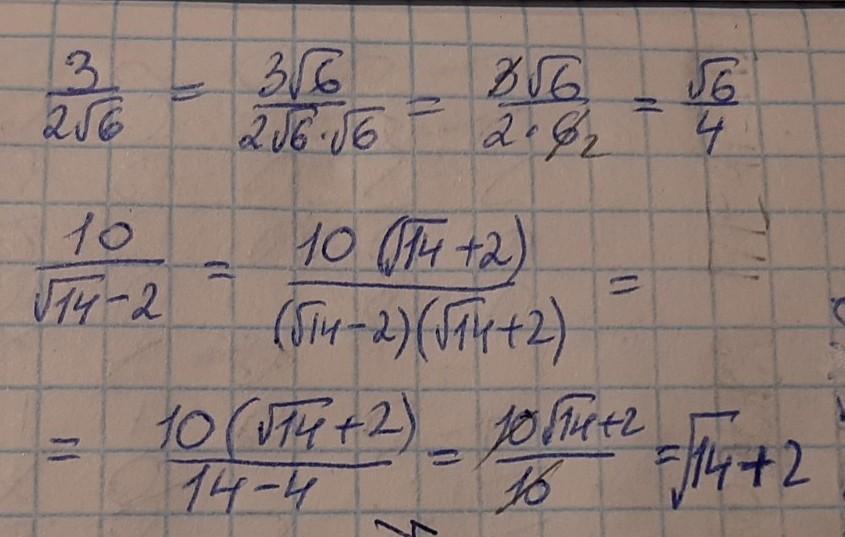 3/(2√6) = 3√6/(2√6·√6) = 3√6/(2·6) 2 = √6/4
10/(√14-2) = 10(√14+2)/((√14-2)(√14+2)) =
= 10(√14+2)/(14-4) = 10√14+2/10 = √14+2